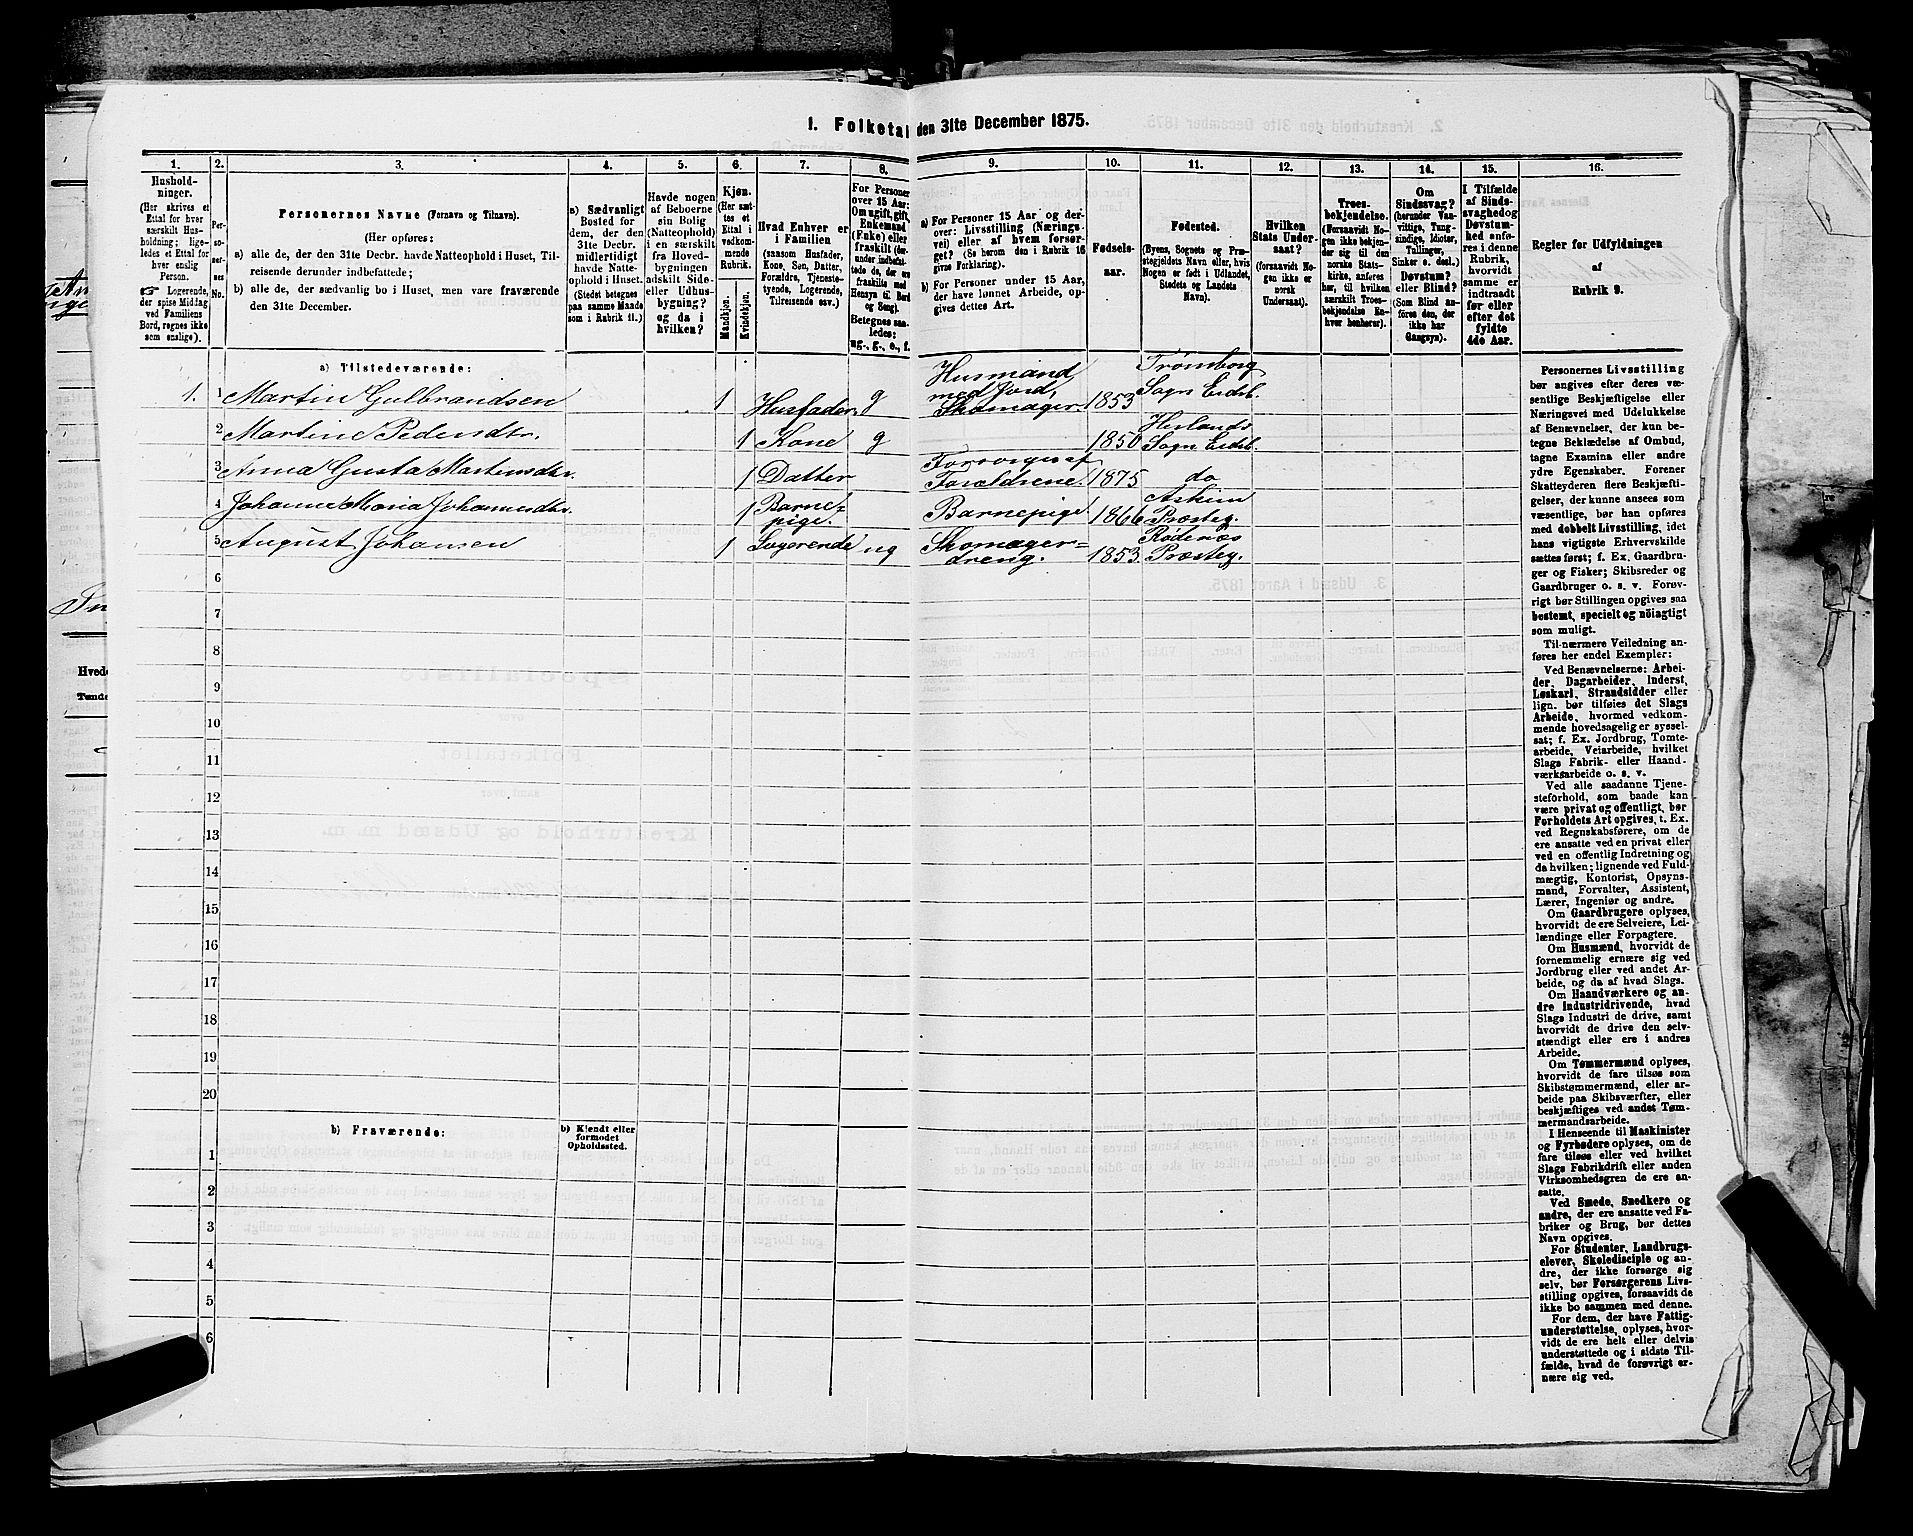 1. Folketal den 31te December 1875.
1.
2.
3.
4.
5.
6.
7.
8.
9.
10.
11.
12.
13.
14.
15.
16.
Hushold-
ninger.
(Her skrives et
Ettal for hver
særskilt Hus-
holdning; lige-
ledes et Ettal for
hver enslig
Person.
☞ Logerende,
der spise Middag
ved Familiens
Bord, regnes ikke
som enslige).
Per-
so-
ner-
nes
No.
Personernes Navne (Fornavn og Tilnavn).
(Her opføres:
a) alle de, der den 31te Decbr. havde Natteophold i Huset, Til-
reisende derunder indbefattede;
b) alle de, der sædvanlig bo i Huset, men vare fraværende
den 31te December.
a) Sædvanligt
Bosted for
dem, der den
31te Decbr.
midlertidigt
havde Natte-
ophold i Huset.
(Stedet betegnes
paa samme Maade
som i Rubrik 11.)
Havde nogen
af Beboerne
sin Bolig
(Natteophold)
i en særskilt
fra Hoved-
bygningen
adskilt Side-
eller Udhus-
bygning?
og da i
hvilken?
Kjøn.
(Her sæt-
tes et
Ettal i
vedkom-
mende
Rubrik.
Mandkjøn.
Kvindekjøn.
Hvad Enhver er
i Familien
(saasom Husfader,
Kone, Søn, Datter,
Forældre, Tjeneste-
tyende, Logerende,
Tilreisende osv.)
For Personer
over 15 Aar:
Om ugift, gift,
Enkemand
(Enke) eller
fraskilt (der-
under indbefat-
tede de, der ere
fraskilte med
Hensyn til Bord
og Seng).
Betegnes saa-
ledes:
ug., g., e., f.
a) For Personer 15 Aar og der-
over: Livsstilling (Nærings-
vei) eller af hvem forsør-
get? (Se herom den i Rubrik 16
givne Forklaring).
b) For Personer under 15 Aar,
der have lønnet Arbeide, op-
gives dettes Art.
Fødsels-
aar.
Fødested.
(Byens, Sognets og Præ-
stegjeldets Navn eller, hvis
Nogen er født i Udlandet,
Stedets og Landets
Navn).
Hvilken
Stats Under-
saat?
(forsaavidt No-
gen ikke er
norsk
Undersaat).
Troes-
bekjendelse.
(Forsaavidt No-
gen ikke bekjen-
der sig til den
norske Stats-
kirke, anføres
her, til hvilken
særskilt Troes-
bekjendelse En-
hver henhører).
Om
Sindssvag?
(herunder Van-
vittige, Tung-
sindige, Idioter,
Tullinger,
Sinker o. desl.)
Døvstum?
eller Blind?
(Som Blind an-
føres den, der
ikke har
Gangsyn).
I Tilfælde
af Sinds-
svaghed og
Døvstum-
hed anfø-
res i denne
Rubrik,
hvorvidt
samme er
indtraadt
før eller
efter det
fyldte
4de Aar.
Regler for Udfyldningen
af
Rubrik 9.
a) Tilstedeværende:
1. 1 Martin Gulbrandsen 1 Husfader g Husmand med Jord, Skomager 1853 Trømborg Sogn Eidsb.
2 Martine Pedersdtr. 1 Kone g 1850 Herlands Sogn Eidsb.
3 Anna Gusta Martinsdtr. 1 Datter Forsørges af Forældrene. 1875 do
4 Johanne Maria Johannesdtr. 1 Barne-pige. Barnepige 1866 Askim Præsteg.
5 August Johansen 1 Logerende ug Skomager-dreng. 1853 Rødenæs Præsteg.
6
7
8
9
10
11
12
13
14
15
16
17
18
19
20
b) Fraværende:
b) Kjendt eller
formodet
Opholdssted.
1
2
3
4
5
6
Personernes Livsstilling
bør angives efter deres væ-
sentlige Beskjæftigelse eller
Næringsvei med Udelukkelse
af Benævnelser, der kun be-
tegne Beklædelse af Ombud,
tagne Examina eller andre
ydre Egenskaber. Forener
Skatteyderen flere Beskjæfti-
gelser, der kunne ansees som
væsentlige, bør han opføres
med dobbelt Livsstilling, idet
hans vigtigste Erhvervskilde
sættes først; f. Ex. Gaardbru-
ger og Fisker; Skibsreder og
Gaardbruger o. s. v. Forøv-
rigt bør Stillingen opgives saa
bestemt, specielt og nöiagtigt
som muligt.
Til nærmere Veiledning an-
føres her endel Exempler:
Ved Benævnelserne: Arbei-
der, Dagarbeider, Inderst,
Løskarl, Strandsidder eller
lign. bør tilføies det Slags
Arbeide, hvormed vedkom-
mende hovedsagelig er syssel-
sat; f. Ex. Jordbrug, Tomte-
arbeide, Veiarbeide, hvilket
Slags Fabrik- eller Haand-
værksarbeide o. s. v.
Ved alle saadanne Tjene-
steforhold, som baade kan
være privat og offentligt, bør
Forholdets Art opgives, t. Ex.
ved Regnskabsførere, om de
ere ansatte ved en privat eller
ved en offentlig Indretning og
da hvilken; lignende ved Fuld-
mægtig, Kontorist, Opsyns-
mand, Forvalter, Assistent,
Lærer, Ingeniør og andre.
Om Gaardbrugere oplyses,
hvorvidt de ere Selveiere, Lei-
lændinge eller Forpagtere.
Om Husmænd, hvorvidt de
fornemmelig ernære sig ved
Jordbrug eller ved andet Ar-
beide, og da af hvad Slags.
Om Haandværkere og an-
dre Industridrivende, hvad
Slags Industri de drive, samt
hvorvidt de drive den selv-
stændigt eller ere i andres
Arbeide.
Om Tømmermænd oplyses,
hvorvidt de fare tilsøs som
Skibstømmermænd, eller ar-
beide paa Skibsværfter, eller
beskjæftiges ved andet Tøm-
mermandsarbeide.
I Henseende til Maskinister
og Fyrbødere oplyses, om de
fare tilsøs eller ved hvilket
Slags Fabrikdrift eller anden
Virksomhedsgren de ere an-
satte.
Ved Smede, Snedkere og
andre, der ere ansatte ved Fa-
briker og Brug, bør dettes
Navn opgives.
For Studenter, Landbrugs-
elever, Skoledisciple og an-
dre, der ikke forsørge sig
selv, bør Forsørgerens Livs-
stilling opgives, forsaavidt de
ikke bo sammen med denne.
For dem, der have Fattig-
understøttelse, oplyses, hvor-
vidt de ere helt eller delvis
understøttede og i sidste Til-
fælde, hvad de forøvrigt er-
nære sig ved.